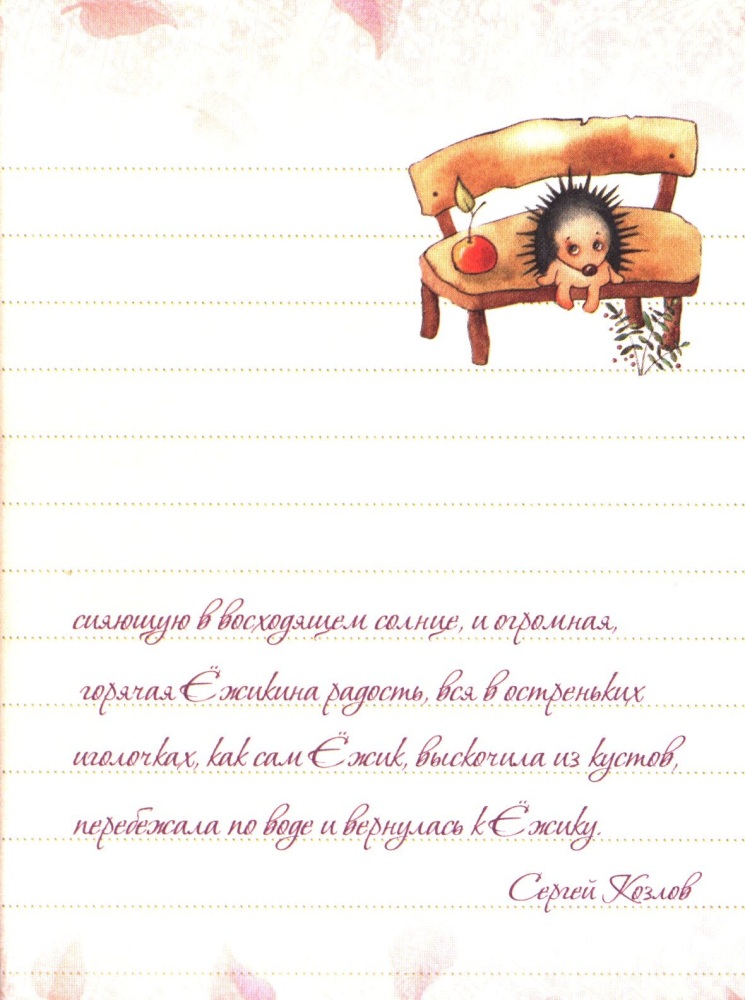 сияющую в восходящем солнце, и огромная,
горячая Ёжикина радость, вся в остреньких
иголочках, как сам Ёжик, выскочила из кустов,
перебежала по воде и вернулась к Ёжику.
Сергей Козлов